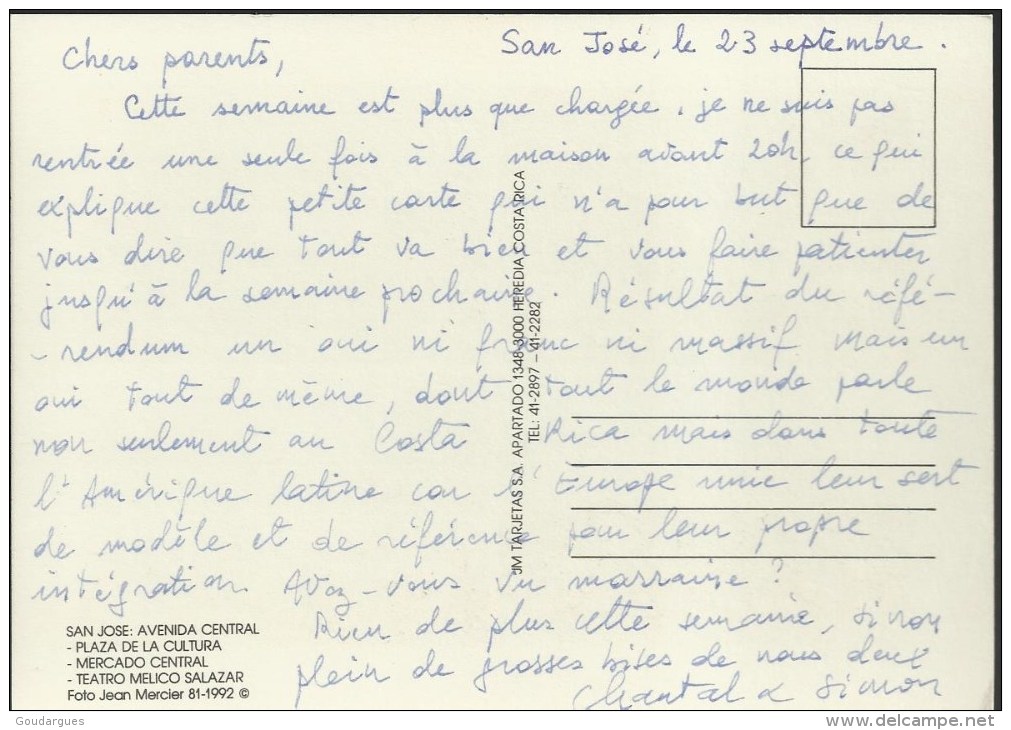 San José, le 23 septembre.
Chers parents,
Cette semaine est plus que chargée, je ne suis pas
rentrée une seule fois à la maison avant 20h, ce qui
explique cette petite carte qui n'a pour but que de
vous dire que tout va bien et vous faire patienter
jusqu'à la semaine prochaine. Résultat du réfé-
-rendum un oui ni franc ni massif mais un
oui tout de même, dont tout le monde parle
non seulement au Costa Rica mais dans toute
l'Amérique latine car l'Europe unie leur sert
de modèle et de référence pour leur propre
intégration. Avez-vous vu marraine ?
Rien de plus cette semaine, sinon
plein de grosses bises de nous deux
Chantal & Simon
JM TARJETAS S.A. APARTADO 1348-3000 HEREDIA, COSTA RICA
TEL: 41-2897 - 41-2282
SAN JOSE: AVENIDA CENTRAL
- PLAZA DE LA CULTURA
- MERCADO CENTRAL
- TEATRO MELICO SALAZAR
Foto Jean Mercier 81-1992 ©
Goudargues
www.delcampe.net